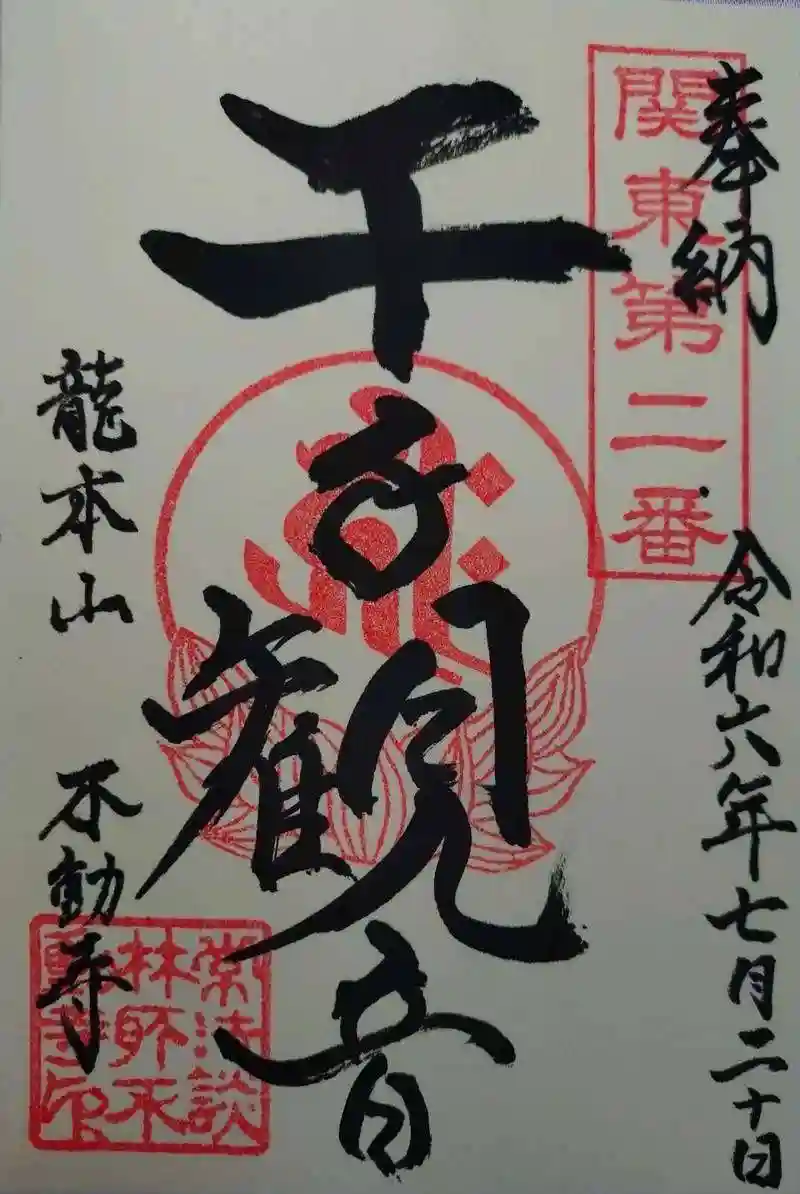 奉納
関東第二番
令和六年七月二十日
千手観音
龍本山
不動寺
常法談
林師不
動寺印